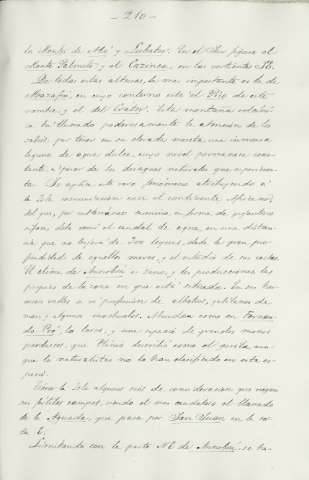 — 210 —
los Montes de Maj y Quebates. En el Oeste figura el
Monte Gabriel y el Cazinea, en las vertientes SE.
De todas estas alturas, la mas importante es la de
Mazafin, en cuyo contorno está el Pico de este
nombre, y el del Crater. Esta montaña volcáni-
ca ha llamado poderosamente la atencion de los
sabios, por tener en su elevada meseta, una inmensa
laguna de agua dulce, cuyo nivel permanece cons-
tante, á pesar de los desagues naturales que experimen-
ta. Se explica este raro fenómeno atribuyendo á
la Isla comunicacion con el continente Africano
del que, por subterránea manera, en forma de gigantesco
sifon, debe venir el caudal de agua, en una distan-
cia que no bajará de 300 leguas, dada la gran pro-
fundidad de aquellos mares, y el estudio de sus costas.
El clima de Annobón es sano, y las producciones las
propias de la zona en que está situada. En sus her-
mosos valles se ven profusion de árboles, gallinas de
man, y algunos machuelos. Abundan como en Fernan-
do Poó, los loros, y una especie de grandes monos
parduscos, que Plinio describió como el orixita aun-
que los naturalistas no lo han clasificado en esta es-
pecie.
Tiene la Isla algunos rios de consideracion que riegan
sus fértiles campos, siendo el mas caudaloso el llamado
de la Aguada, que pasa por San Juan en la cos-
ta E.
Limitando con la parte NE de Annobón se ha-